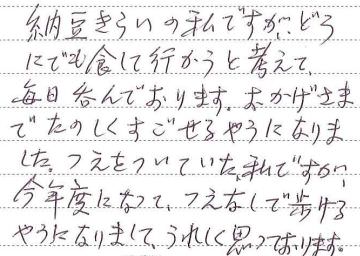 納豆きらいの私ですが、どう
にでも食して行かうと考えて、
毎日呑んでおります。おかげさま
でたのしくすごせるやうになりま
した。つえをついていた私ですが、
今年度になって、つえなしで歩ける
やうになりまして、うれしく思っております。